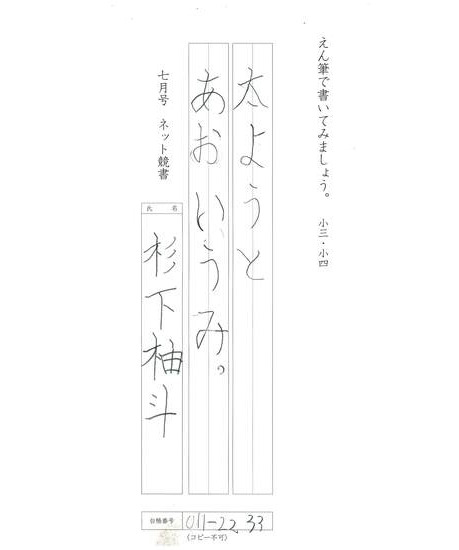 えん筆で書いてみましょう。 小三・小四
太ようと
あおいうみ。
七月号 ネット競書
氏名
杉下柚斗
台帳番号 011-22.33
(コピー不可)